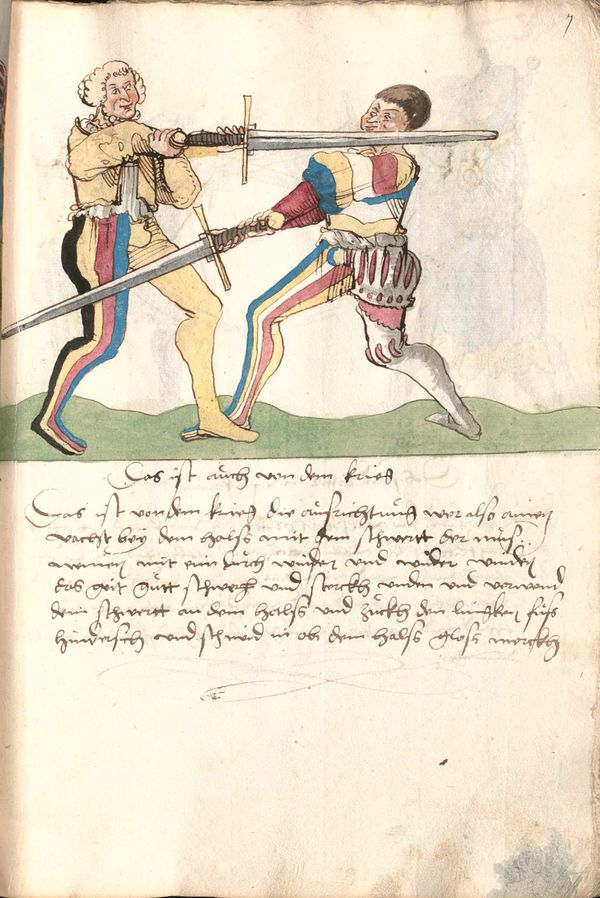 7
Das ist auch von dem krieg
Das ist von dem krieg die ausrichtung wer also ainen
vachst bey dem halss mit dem schwertt der mus
mit ein durch winden und wider winden
das geit gutt schwech und sterckh unden und verwend
dein schwertt an dem halss und zuckh den lingken fuss
hindersich und schneid in ob dem halss gloss merckh